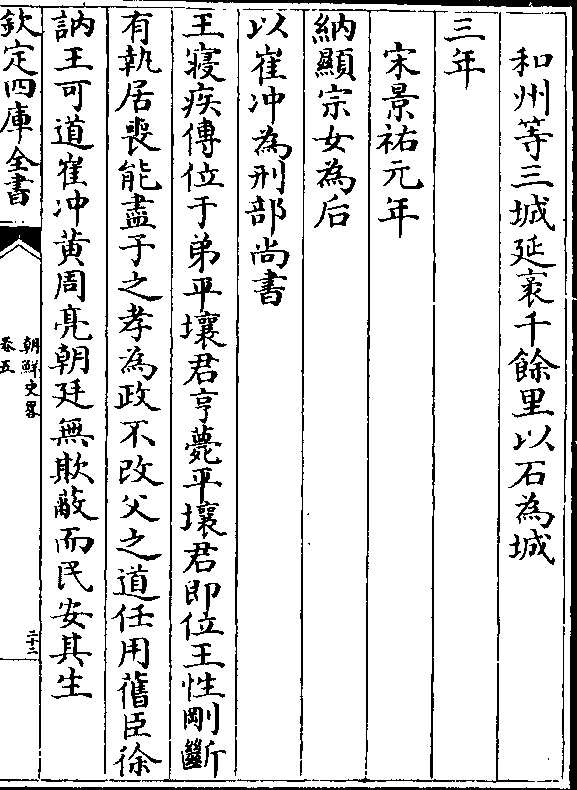 和州等三城延袤千餘里以石為城
三年
宋景祐元年
納顯宗女為后
以崔冲為刑部尚書
王寝疾傳位于弟平壤君亨薨平壤君即位王性剛斷
有執居喪能盡子之孝為政不改父之道任用舊臣徐
訥王可道崔冲黄周亮朝廷無欺蔽而民安其生
欽定四庫全書
朝鮮史畧
卷五
二十二